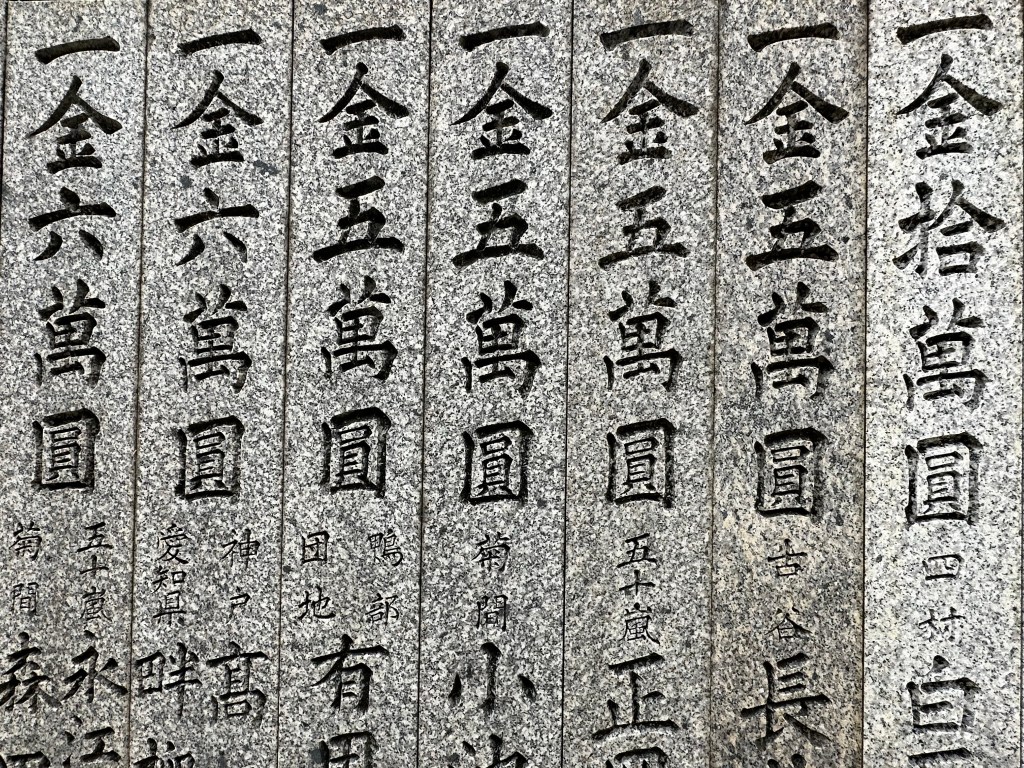 一金拾萬圓 四村 白
一金五萬圓 古谷 長
一金五萬圓 五十嵐 正
一金五萬圓 菊間 小池
一金五萬圓 鴨部団地 有
一金六萬圓 神戸 高
愛知県 畔柳
一金六萬圓 五十嵐 永江
菊間 森